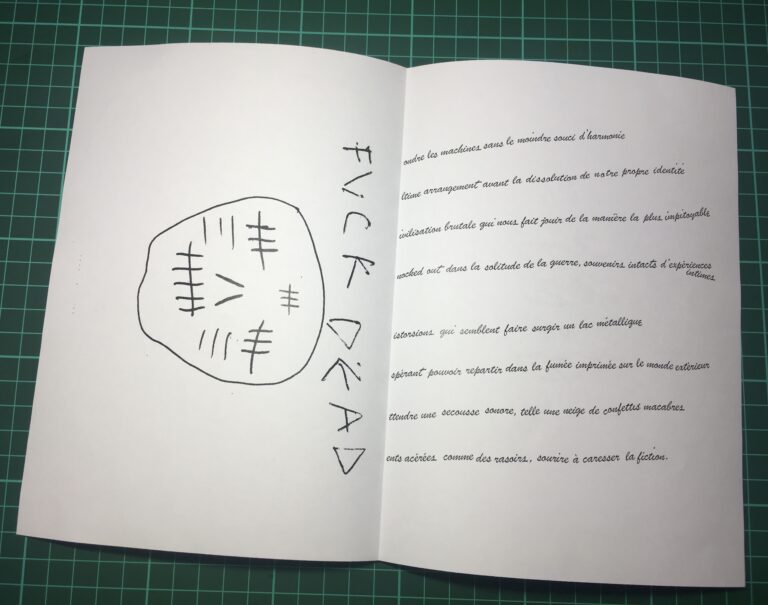 FUCK DEAD
ondre les machines sans le moindre souci d'harmonie
ltime arrangement avant la dissolution de notre propre identité
ivilisation brutale qui nous fait jouir de la manière la plus impitoyable
nocked out dans la solitude de la guerre, souvenirs intacts d'expériences
intimes
istorsions qui semblent faire surgir un lac métallique
spérant pouvoir repartir dans la fumée imprimée sur le monde extérieur
ttendre une secousse sonore, telle une neige de confettis macabres
ents acérées comme des rasoirs, sourire à caresser la fiction.